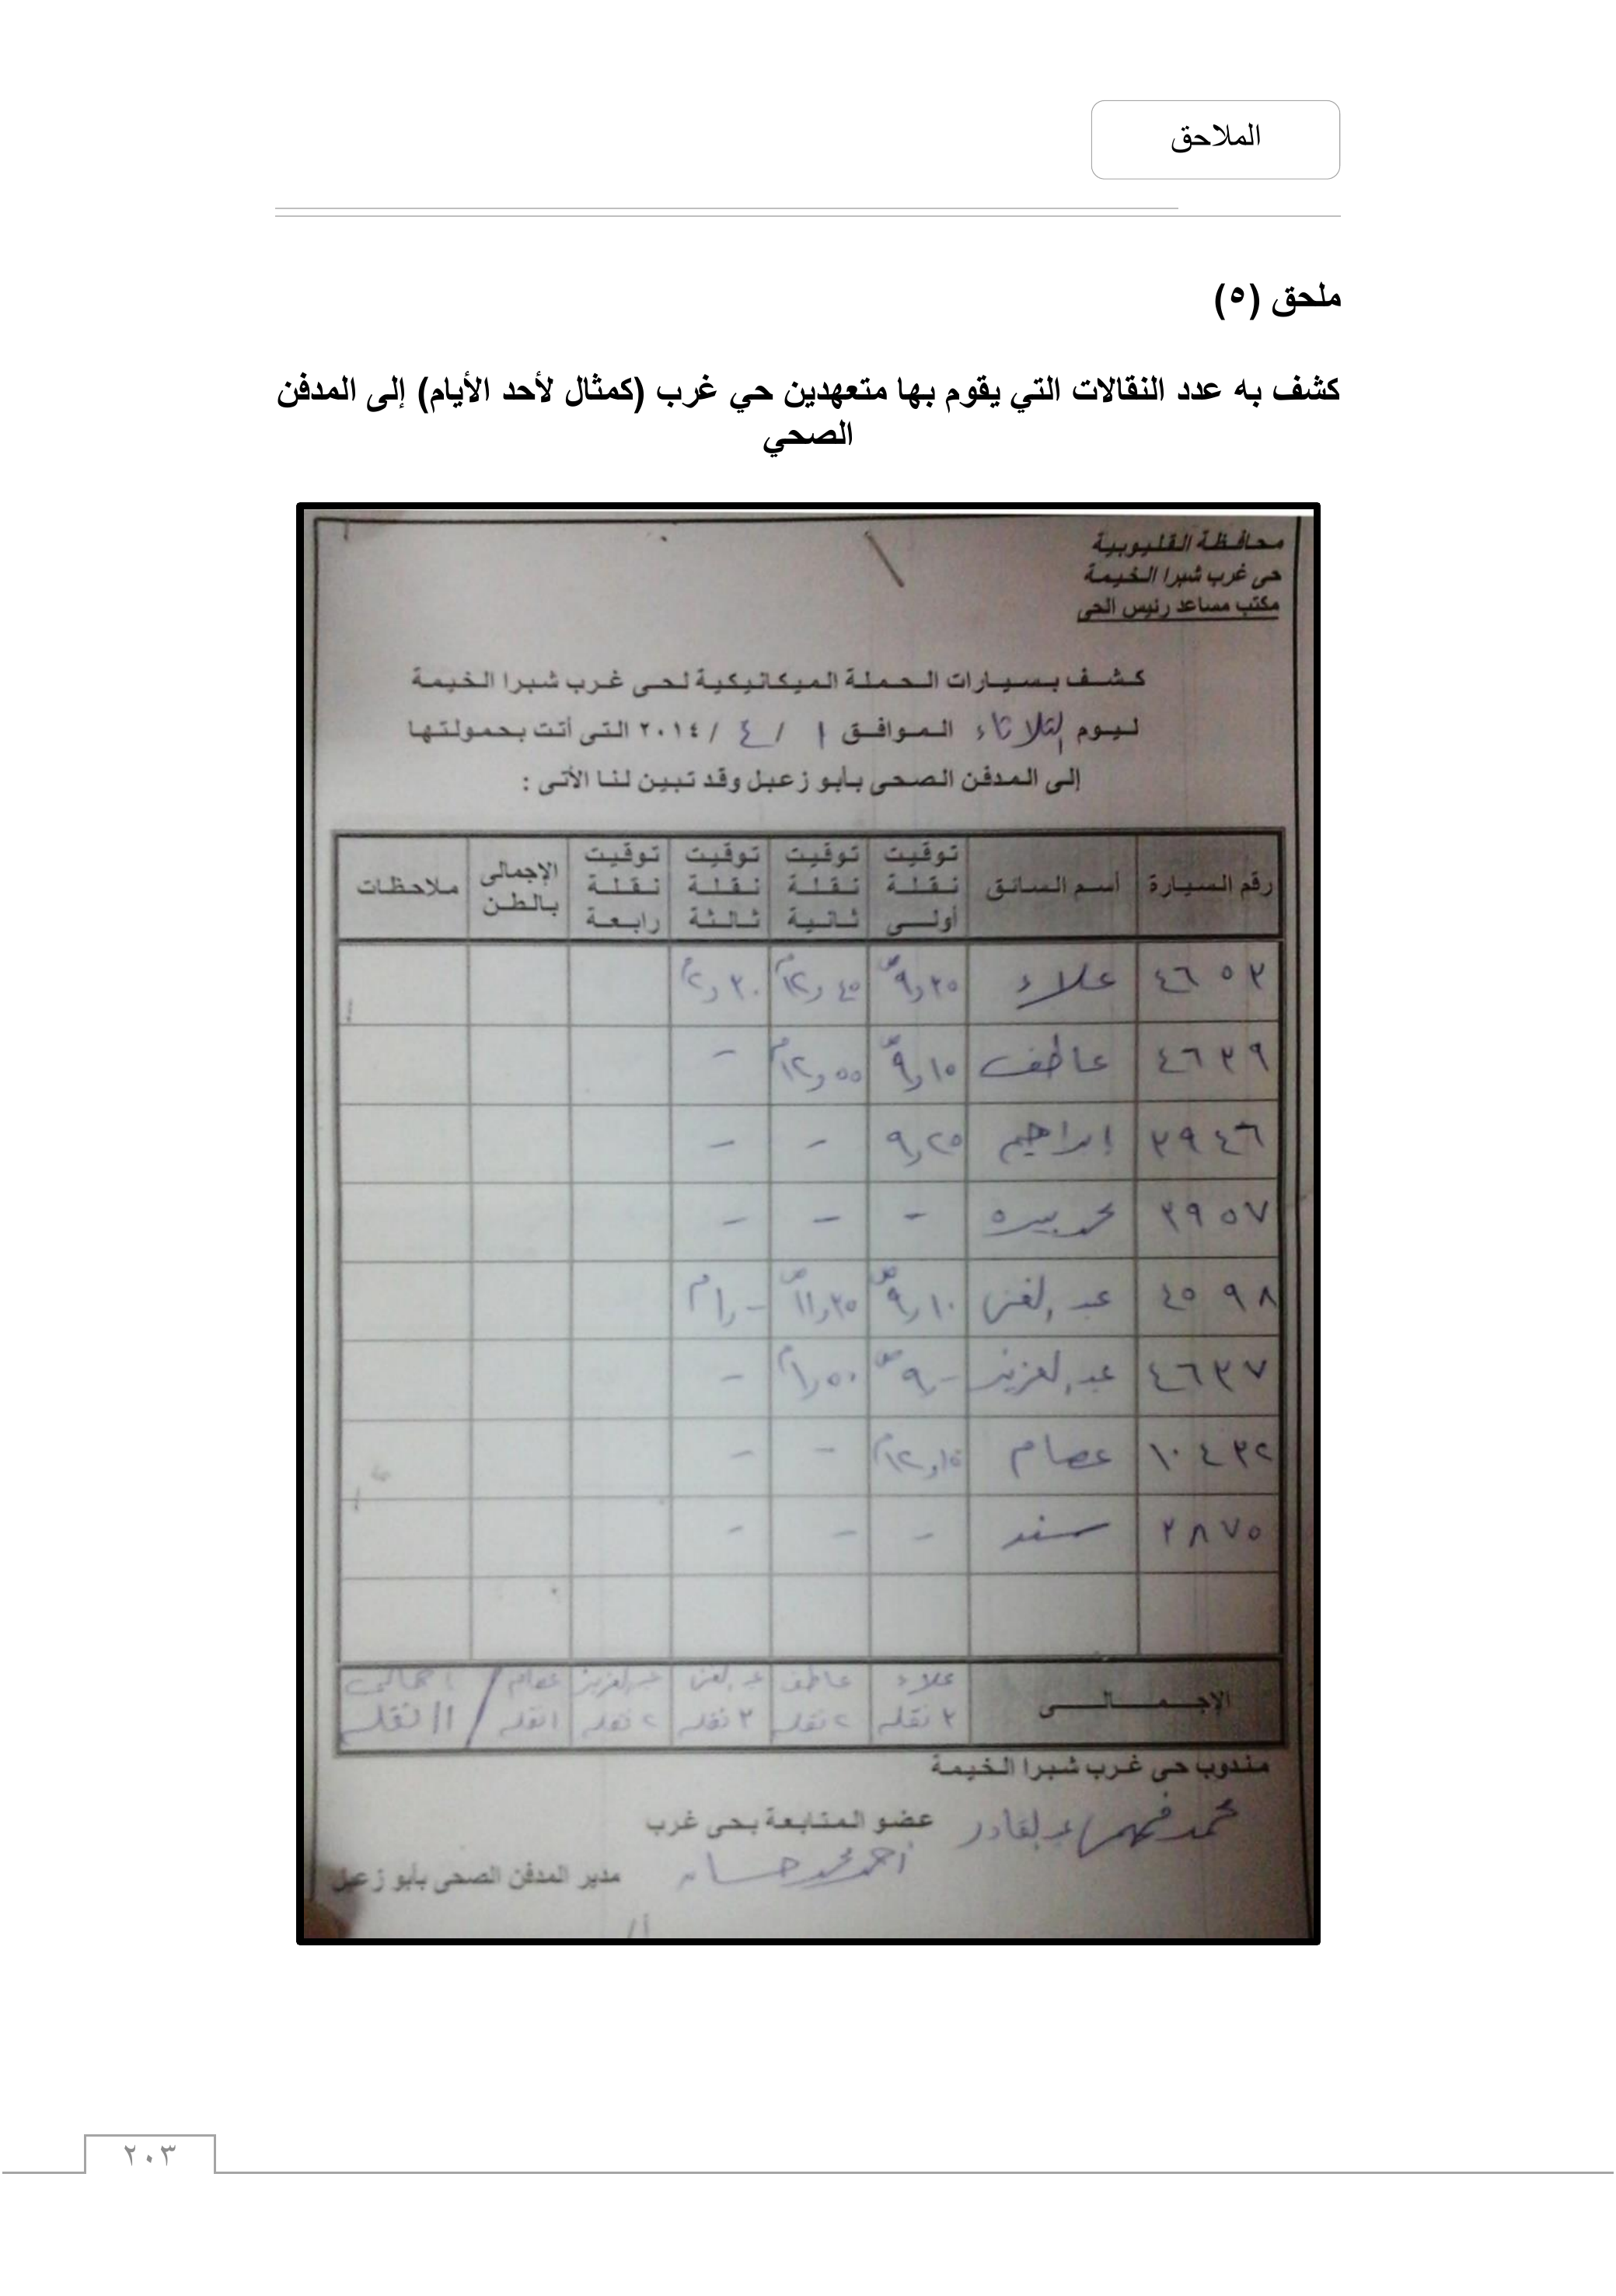 الملاحق
ملحق (٥)
كشف به عدد النقالات التي يقوم بها متعهدين حي غرب (كمثال لأحد الأيام) إلى المدفن
الصحي
محافظة القليوبية
حى غرب شبرا الخيمة
مكتب مساعد رئيس الحى
كشف بسيارات الحملة الميكانيكية لحى غرب شبرا الخيمة
ليوم الثلاثاء الموافق ١ / ٤ / ٢٠١٤ التى أتت بحمولتها
إلى المدفن الصحى بأبو زعبل وقد تبين لنا الأتى :
رقم السيارة أسم السائق توقيت نقلة أولى توقيت نقلة ثانية توقيت نقلة ثالثة توقيت نقلة رابعة الإجمالى بالطن ملاحظات
٤٦٥٣ علاء ٩,٣٥ص ١٢,٤٥م ٢,٣٠م
٤٦٣٩ عاطف ٩,١٥ص ١٢,٥٥م -
٣٩٤٦ إبراهيم ٩,٢٥ - -
٣٩٥٧ محمد - - -
٤٥٩٨ عبد الغنى ٩,١٠ص ١١,٣٥ص ١,-م
٤٦٣٧ عبد العزيز ٩,-ص ١,٥٠م -
١٠٤٣٢ عصام ١٢,١٥م - -
٢٨٧٥ سند - - -
الإجمالى علاء ٣ نقله عاطف ٢ نقله عبد الغنى ٣ نقله عبد العزيز ٢ نقله عصام ١ نقله / اجمالى ١١ نقله
مندوب حى غرب شبرا الخيمة
محمد فهمى عبد القادر
عضو المتابعة بحى غرب
أحمد محمد حسان
مدير المدفن الصحى بأبو زعبل
أ/
٢٠٣